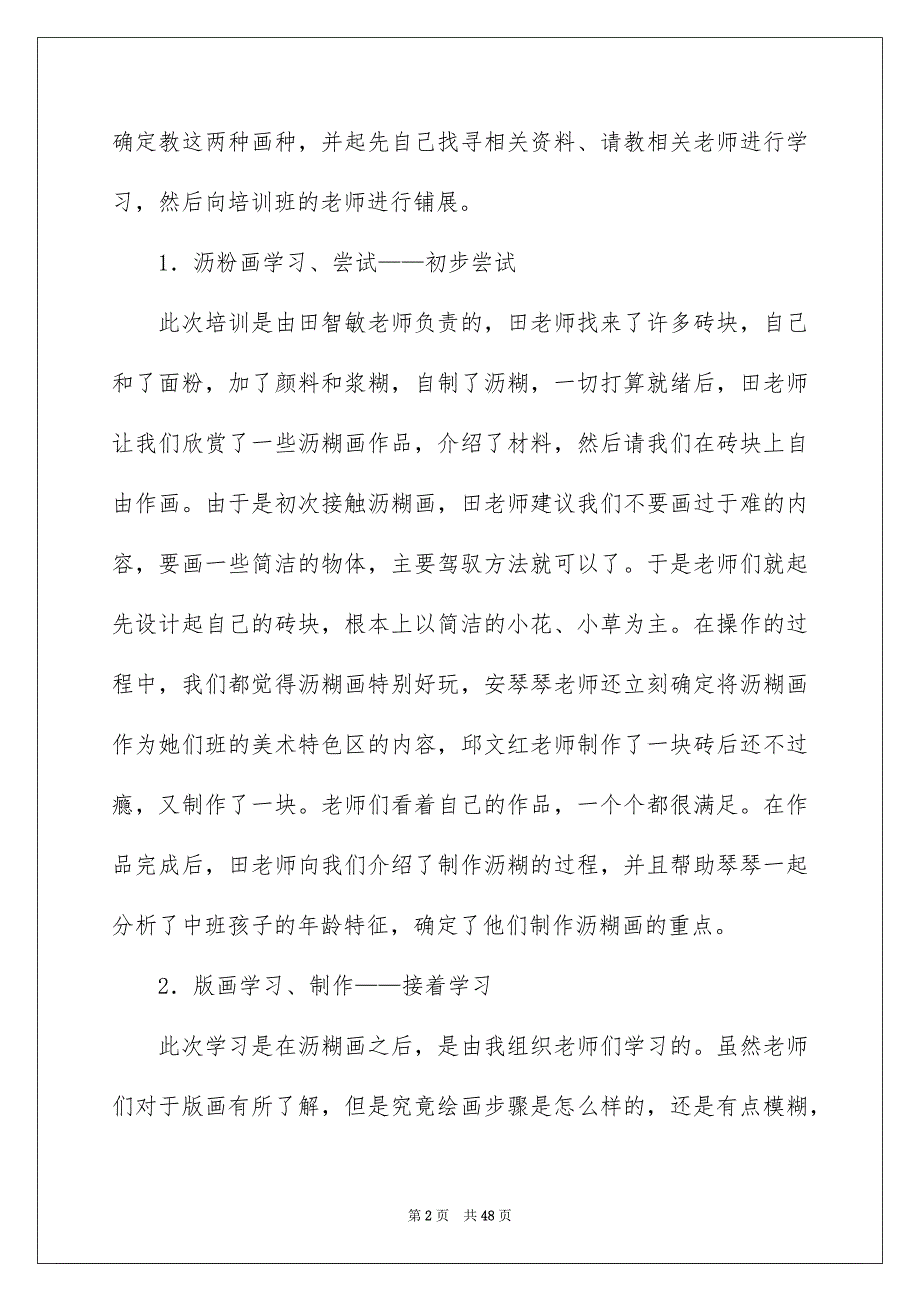 确定教这两种画种，并起先自己找寻相关资料、请教相关老师进行学
习，然后向培训班的老师进行铺展。
1．沥粉画学习、尝试——初步尝试
此次培训是由田智敏老师负责的，田老师找来了许多砖块，自己
和了面粉，加了颜料和浆糊，自制了沥糊，一切打算就绪后，田老师
让我们欣赏了一些沥糊画作品，介绍了材料，然后请我们在砖块上自
由作画。由于是初次接触沥糊画，田老师建议我们不要画过于难的内
容，要画一些简洁的物体，主要驾驭方法就可以了。于是老师们就起
先设计起自己的砖块，根本上以简洁的小花、小草为主。在操作的过
程中，我们都觉得沥糊画特别好玩，安琴琴老师还立刻确定将沥糊画
作为她们班的美术特色区的内容，邱文红老师制作了一块砖后还不过
瘾，又制作了一块。老师们看着自己的作品，一个个都很满足。在作
品完成后，田老师向我们介绍了制作沥糊的过程，并且帮助琴琴一起
分析了中班孩子的年龄特征，确定了他们制作沥糊画的重点。
2．版画学习、制作——接着学习
此次学习是在沥糊画之后，是由我组织老师们学习的。虽然老师
们对于版画有所了解，但是究竟绘画步骤是怎么样的，还是有点模糊，
第 2 页 共 48 页